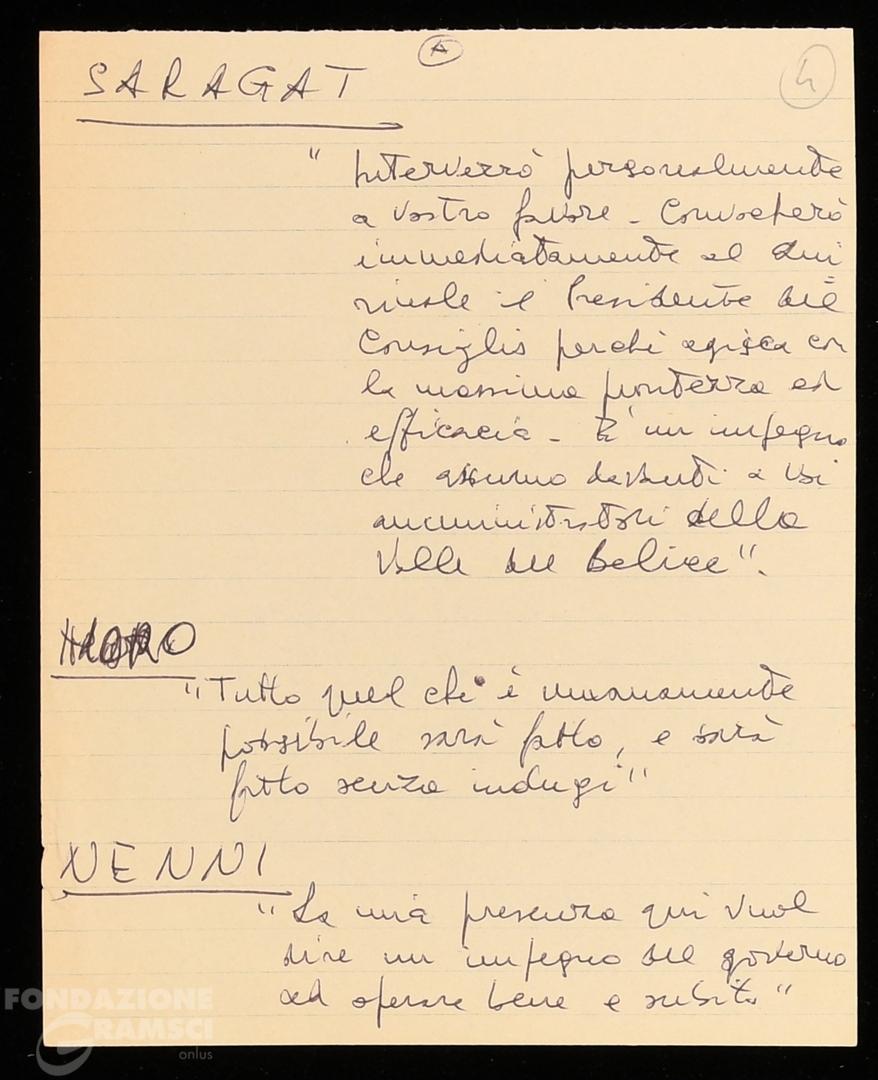 A
4
SARAGAT
" Interverrò personalmente
a vostro favore - Convocherò
immediatamente al Qui
rinale il Presidente del
Consiglio perché agisca con
la massima prontezza ed
efficacia - E' un impegno
che assumo davanti a voi
amministratori della
Valle del Belice".
MORO
"Tutto quel che è umanamente
possibile sarà fatto, e sarà
fatto senza indugi"
NENNI
"La mia presenza qui vuol
dire un impegno del governo
ad operare bene e subito"
FONDAZIONE
GRAMSCI
onlus